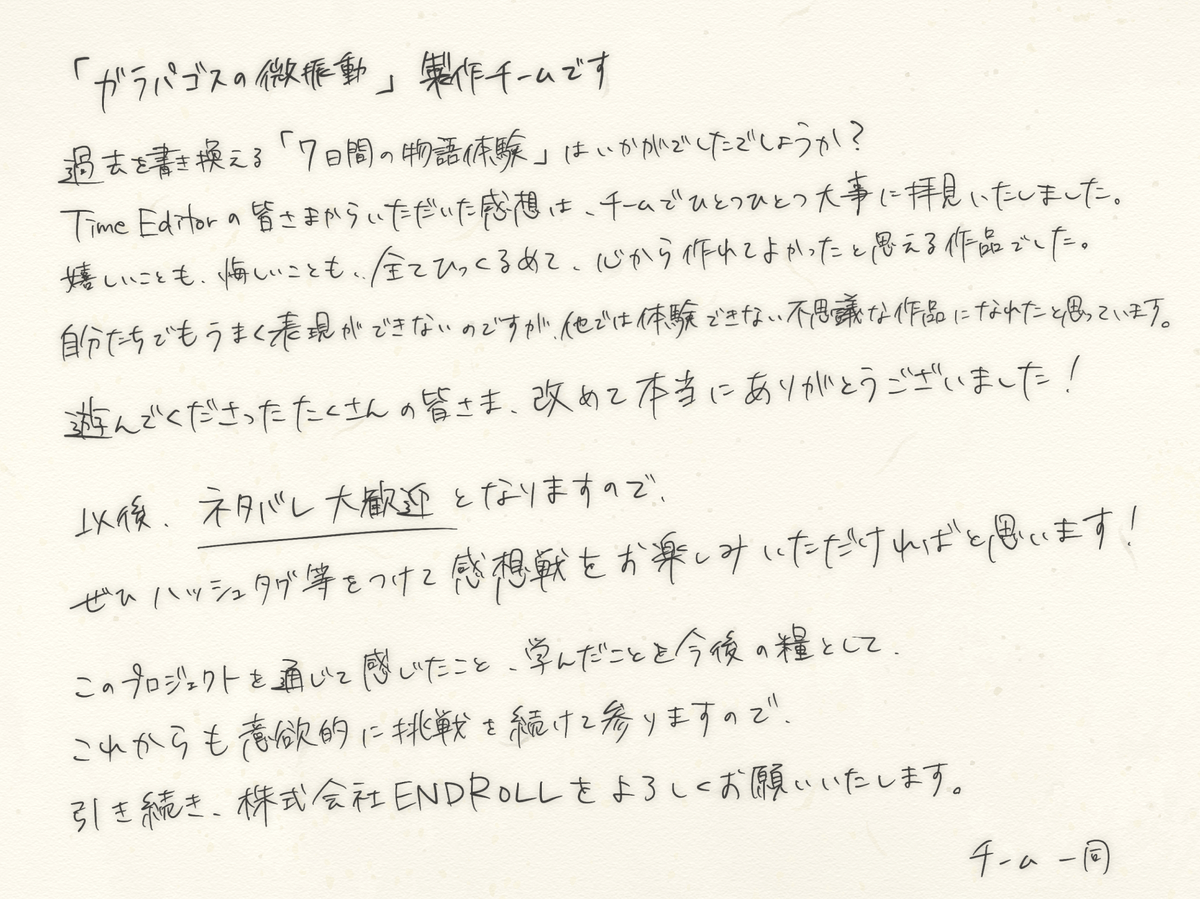 「ガラパゴスの微振動」製作チームです
過去を書き換える「7日間の物語体験」はいかがでしたでしょうか？
Time Editorの皆さまからいただいた感想は、チームでひとつひとつ大事に拝見いたしました。
嬉しいことも、悔しいことも、全てひっくるめて、心から作れてよかったと思える作品でした。
自分たちでもうまく表現ができないのですが、他では体験できない不思議な作品になれたと思っています。
遊んでくださったたくさんの皆さま、改めて本当にありがとうございました！
以後、ネタバレ大歓迎となりますので、
ぜひハッシュタグ等をつけて感想戦をお楽しみいただければと思います！
このプロジェクトを通じて感じたこと、学んだことを今後の糧として、
これからも意欲的に挑戦を続けて参りますので、
引き続き、株式会社ENDROLLをよろしくお願いいたします。
チーム一同